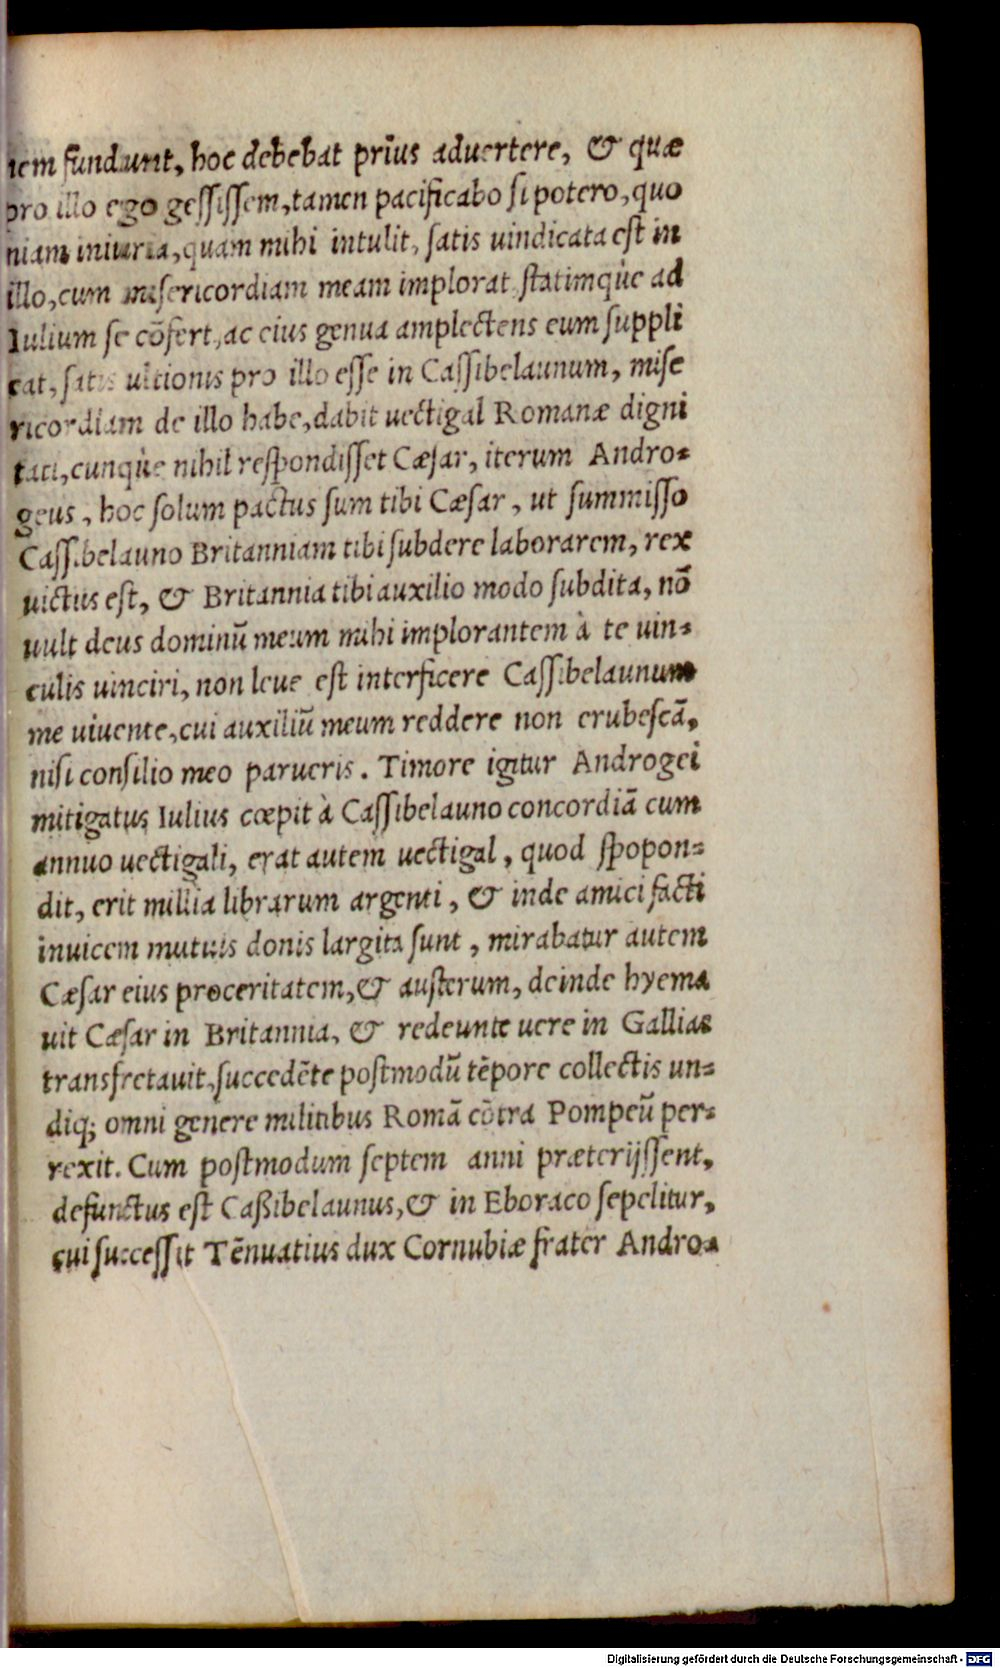 nem fundunt, hoc debebat prius aduertere, & quæ
pro illo ego gessissem, tamen pacificabo si potero, quo
niam iniuria, quam mihi intulit, satis uindicata est in
illo, cum misericordiam meam implorat statimqùe ad
Iulium se cõfert, ac eius genua amplectens eum suppli
cat, satis ultionis pro illo esse in Cassibelaunum, mise
ricordiam de illo habe, dabit uectigal Romanæ digni
tati, cunqùe nihil respondisset Cæsar, iterum Andro-
geus, hoc solum pactus sum tibi Cæsar, ut summisso
Cassibelauno Britanniam tibi subdere laborarem, rex
uictus est, & Britannia tibi auxilio modo subdita, nõ
uult deus dominũ meum mihi implorantem à te uin-
culis uinciri, non leue est interficere Cassibelaunum
me uiuente, cui auxiliũ meum reddere non erubescã,
nisi consilio meo parueris. Timore igitur Androgei
mitigatus Iulius cœpit à Cassibelauno concordiã cum
annuo uectigali, erat autem uectigal, quod spopon-
dit, erit millia librarum argenti, & inde amici facti
inuicem mutuis donis largita sunt, mirabatur autem
Cæsar eius proceritatem, & austerum, deinde hyema
uit Cæsar in Britannia, & redeunte uere in Gallias
transfretauit, succedẽte postmodũ tẽpore collectis un-
diq; omni genere militibus Romã cõtra Pompeũ per-
rexit. Cum postmodum septem anni præterijssent,
defunctus est Caßibelaunus, & in Eboraco sepelitur,
cui successit Tẽnuatius dux Cornubiæ frater Andro-
Digitalisierung gefördert durch die Deutsche Forschungsgemeinschaft - DFG